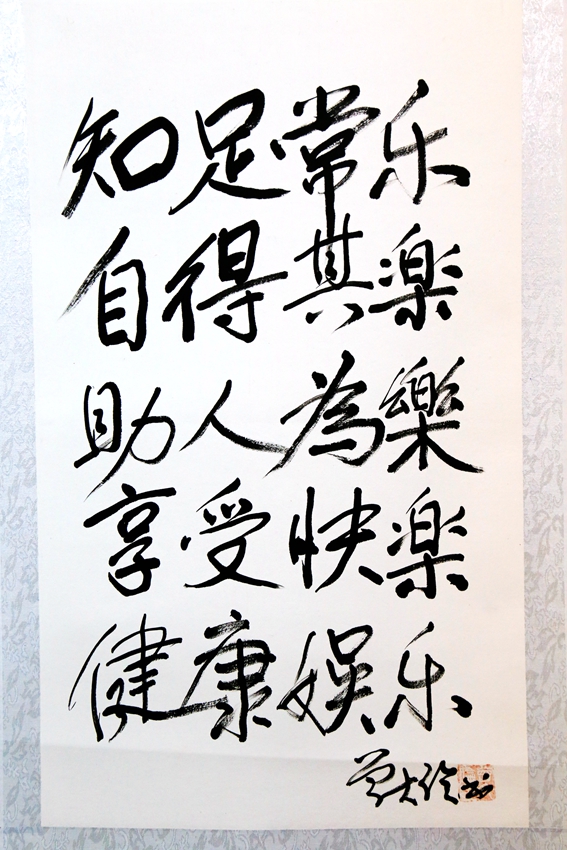 知足常乐
自得其楽
助人為樂
享受快楽
健康娱乐